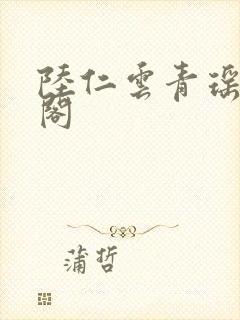 陸仁雲青瑶
閣
蒲哲